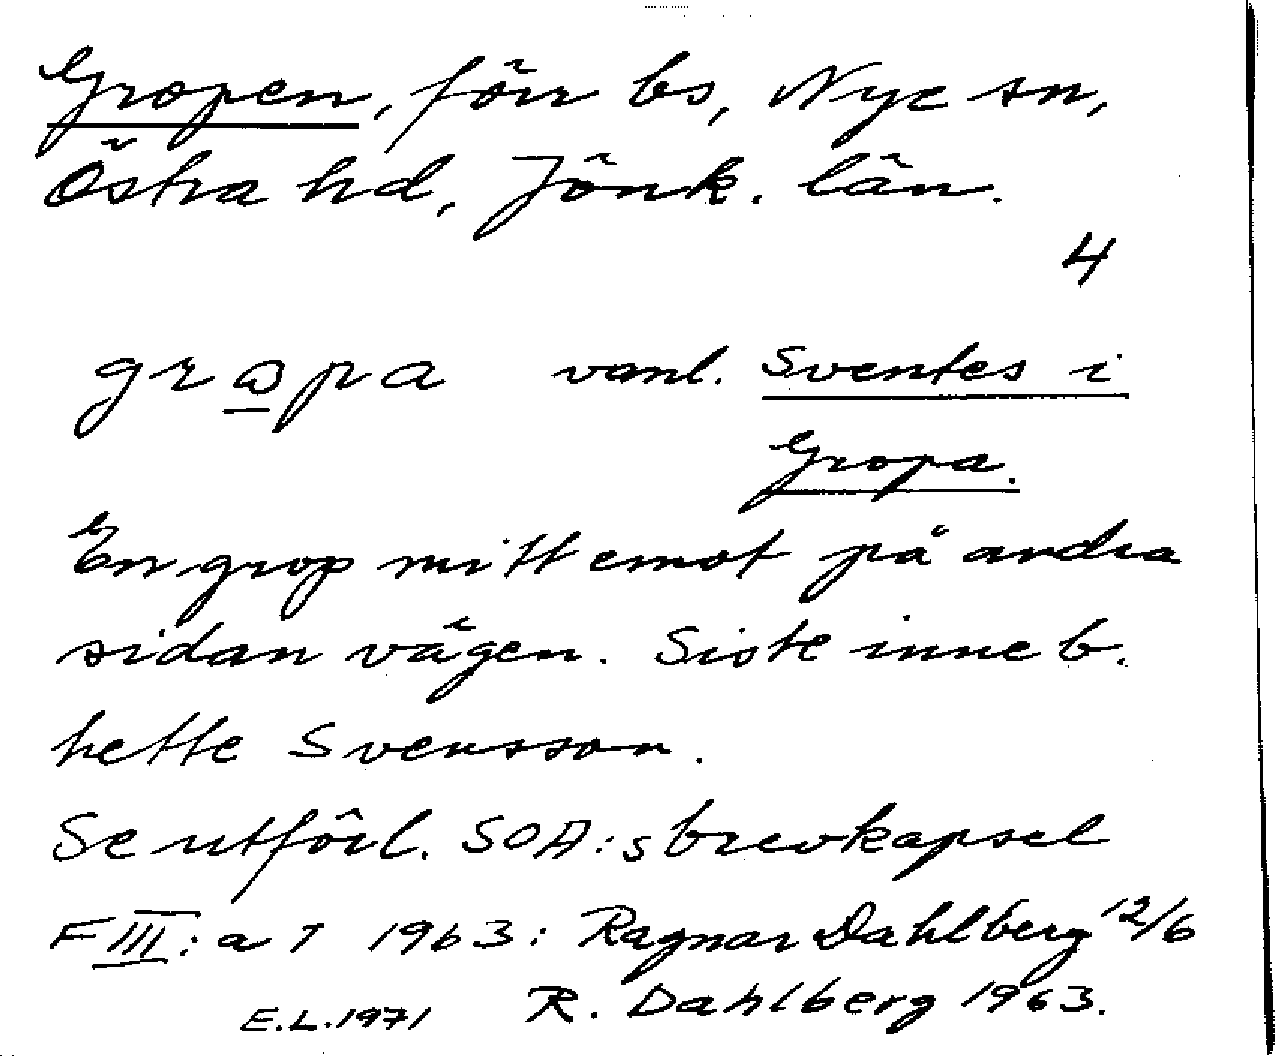 Gropen, förr bs, Nye sn,
Östra hd, Jönk. län.
4
grɷpa vanl. Sventes i
Gropa.
En grop mitt emot på andra
sidan vägen. Siste inneb.
hette Svensson.
Se utförl. SOA:s brevkapsel
F III: a 7 1963: Ragnar Dahlberg 12/6
E.L.1971 R. Dahlberg 1963.